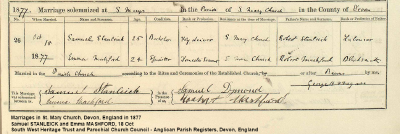 1877. Marriage solemnized at S. Marys in the Parish of S. Mary Church in the County of Devon
No. When Married. Name and Surname. Age. Condition. Rank or Profession. Residence at the time of Marriage. Father's Name and Surname. Rank or Profession of Father.
26 Oct 18 1877 Samuel Stanlick 25 Bachelor S. Mary Church Robert Stanlick Labourer
Emma Mashford 24 Spinster S. Mary Church Robert Mashford Blacksmith
Married in the Parish Church according to the Rites and Ceremonies of the Established Church, by or after Banns by
This Marriage was solemnized between us, Samuel Stanlick Emma Mashford in the Presence of us, Samuel Dymond Mashford
Marriages in St. Mary Church, Devon, England in 1877
Samuel STANLICK and Emma MASHFORD, 18 Oct
South West Heritage Trust and Parochial Church Council - Anglican Parish Registers, Devon, England